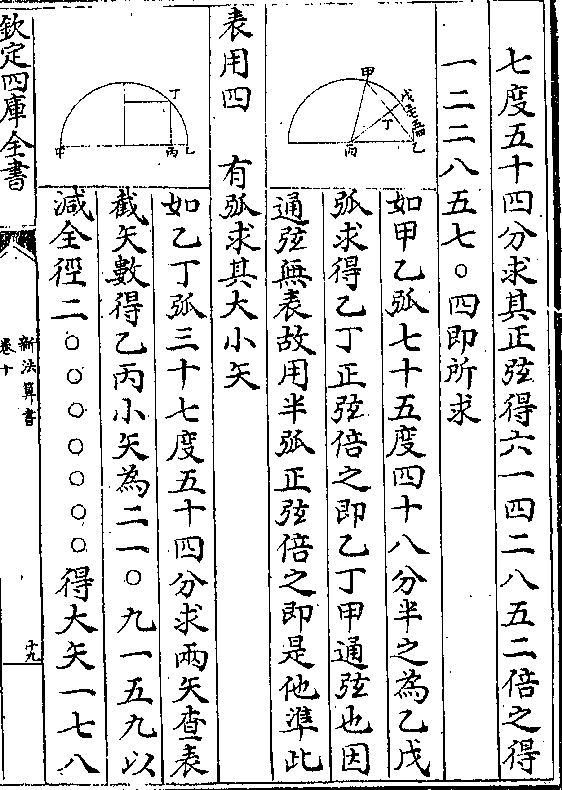 七度五十四分求其正弦得六一四二八五二倍之得
一二二八五七〇四即所求
甲
戊
丁
丙
乙
如甲乙弧七十五度四十八分半之為乙戊
弧求得乙丁正弦倍之即乙丁甲通弦也因
通弦無表故用半弧正弦倍之即是他準此
表用四　有弧求其大小矢
丁
甲
丙
乙
如乙丁弧三十七度五十四分求兩矢查表
截矢數得乙丙小矢為二一〇九一五九以
減全徑二〇〇〇〇〇〇〇得大矢一七八
欽定四庫全書
新法算書
卷十
十九